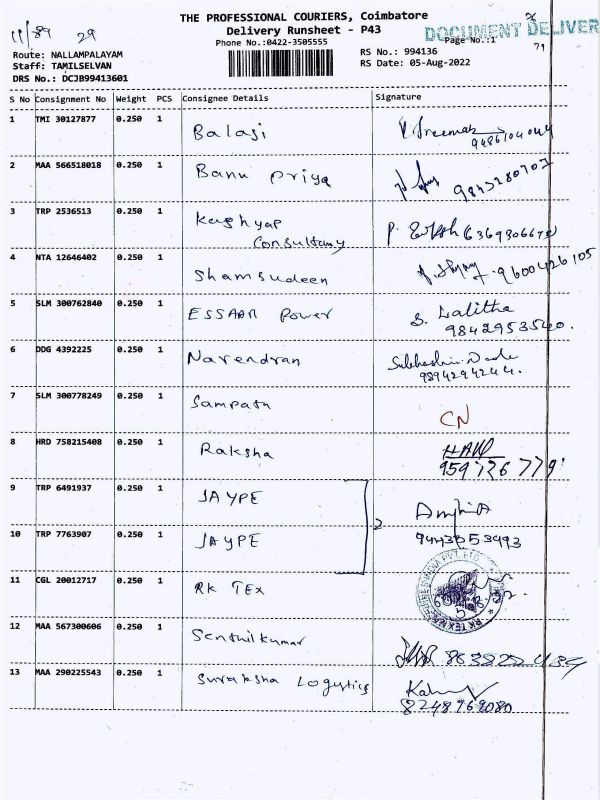 THE PROFESSIONAL COURIERS, Coimbatore
Delivery Runsheet - P43
Phone No.:0422-3505555
DOCUMENT DELIVER
Page No.:1
11/89 29
79
Route: NALLAMPALAYAM
Staff: TAMILSELVAN
DRS No.: DCJB99413601
RS No.: 994136
RS Date: 05-Aug-2022
S No Consignment No Weight PCS Consignee Details Signature
1 TMI 30127877 0.250 1 Balaji
2 MAA 566518018 0.250 1 Banu Priya 9843280707
3 TRP 2536513 0.250 1 Kashyap Consultancy
4 NTA 12646402 0.250 1 Shamsudeen 9600426105
5 SLM 300762840 0.250 1 ESSAAR Power S. Lalitha
9842953540.
6 DDG 4392225 0.250 1 Narendran
9894294244.
7 SLM 300778249 0.250 1 Sampath CN
8 HRD 758215408 0.250 1 Raksha
9597267791
9 TRP 6491937 0.250 1 JAYPE
10 TRP 7763907 0.250 1 JAYPE 9443353993
11 CGL 20012717 0.250 1 RK TEX
12 MAA 567300606 0.250 1 Senthilkumar
13 MAA 290225543 0.250 1 Suraksha Logystics
8248969080